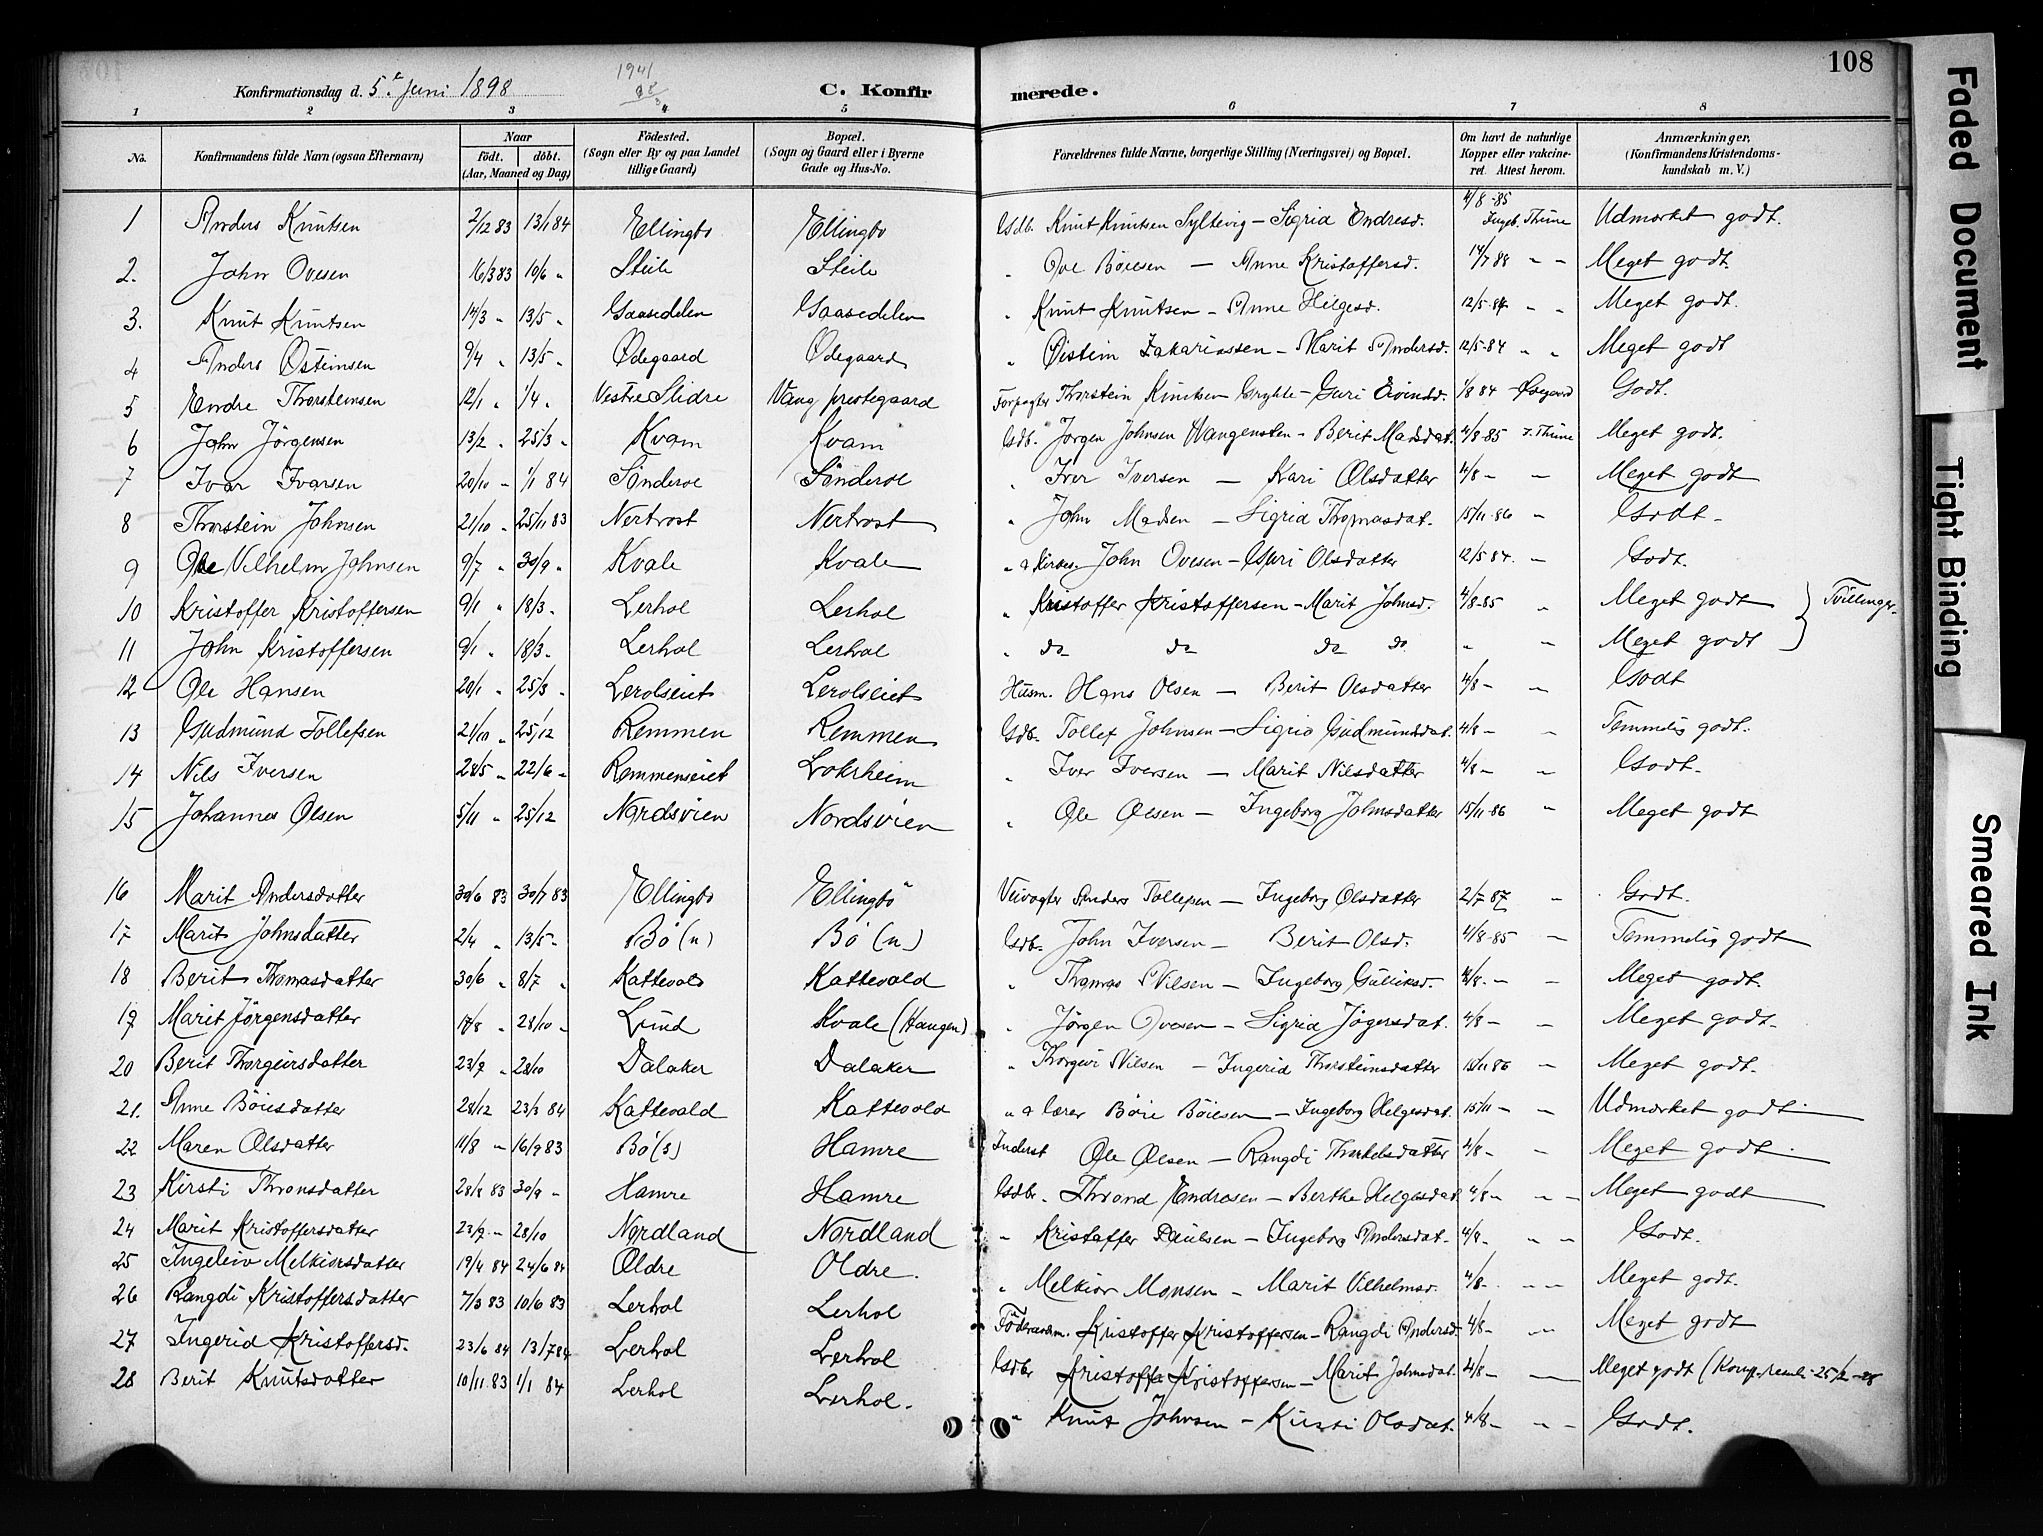 108
Konfirmationsdag d. 5te Juni 1898
1941
C. Konfirmerede.
1 2 3 4 5 6 7 8
No.
Konfirmandens fulde Navn (ogsaa Efternavn)
Naar
födt. döbt.
(Aar, Maaned og Dag)
Födested.
(Sogn eller By og paa Landet
tillige Gaard)
Bopæl.
(Sogn og Gaard eller i Byerne
Gade og Hus-No.
Forældrenes fulde Navne, borgerlige Stilling (Næringsvei) og Bopæl.
Om havt de naturlige
Kopper eller vakcine-
ret. Attest herom.
Anmærkninger,
(Konfirmandens Kristendoms-
kundskab m. V.)
1 Anders Knutsen 2/12 83 13/1 84 Ellingbo Ellingbo Gdb. Knut Knutsen Syltevig - Sigrid Endresd. 4/8-85 Ingeb. Thune Udmærket godt.
2. John Ovesen 16/3 83 10/6 „ Steile Steile „ Ove Böiesen — Anne Kristoffersd. 14/7 88 „ „ Meget godt.
3. Knut Knutsen 14/3 „ 13/5 „ Gaasedelen Gaasedelen „ Knut Knutsen - Anne Helgesd. 12/5-84 „ „ Meget godt.
4 Anders Østeinsen 9/4 „ 13/5 „ Ødegaard Ødegaard „ Øistein Zakariassen - Marit Andersd. 12/5-84 „ „ Meget godt
5 Endre Thorsteinsen 12/1 „ 1/4 „ Vestre Slidre Vang prestegaard Forpagter Thorstein Knutsen Grythe - Guri Eivindsd. 1/8 84 - Ødegaard Godt.
6 John Jörgensen 13/2 „ 25/3 „ Kvam Kvam Gdb. Jörgen Johnsen Wangensten - Berit Madsdat. 4/8-85 I. Thune Meget godt.
7 Ivar Ivarsen 20/10 „ 1/1 84 Sönderoe Sönderoe „ Iver Iversen — Kari Olsdatter 4/8 - „ Meget godt
8 Thorstein Johnsen 21/10 „ 25/11 83 Nertrost Nertrost „ John Madsen — Sigrid Thomasdat. 15/11-86 „ Godt -
9 Ole Vilhelm Johnsen 9/7 „ 30/9 „ Kvale Kvale „ & Kirkes. John Ovesen - Guri Olsdatter 12/5 84. „ Godt.
10 Kristoffer Kristoffersen 9/1 „ 18/3 „ Lerhol Lerhol „ Kristoffer Kristoffersen - Marit Johnsd. 4/8-85 „ Meget godt } Tvillinger.
11 John Kristoffersen 9/1 „ 18/3 „ Lerhol Lerhol „ do do do do „ „ Meget godt
12 Ole Hansen 20/1 „ 25/3 „ Lerolseiet Lerolseiet Husm. Hans Olsen — Berit Olsdatter 4/8 - „ Godt
13 Gudmund Tollefsen 21/10 „ 25/12 Remmen Remmen Gdb. Tollef Johnsen - Sigrid Gudmundsdat. 4/8 - „ Temmelig godt.
14 Nils Iversen 28/5 „ 22/6 „ Remmenseiet Loksheim „ Iver Iversen — Marit Nilsdatter 4/8 - „ Godt.
15 Johannes Olsen 5/11 „ 25/12 Nordsvien Nordsvien „ Ole Olesen — Ingeborg Johnsdatter 15/11-86 „ Meget godt
16 Marit Andersdatter 30/6 83 30/7 83 Ellingbo Ellingbö Veivogter Anders Tollefsen — Ingeborg Olsdatter 2/7 87 „ Godt.
17 Marit Johnsdatter 2/4 „ 13/5 „ Bö (n) Bö (n) Gdb. John Iversen — Berit Olsd. 4/8-85 „ Temmelig godt
18 Berit Thomasdatter 30/6 „ 8/7 „ Kattevold Kattevold „ Thomas Nilsen — Ingeborg Gulliksd. 4/8 - „ Meget godt.
19 Marit Jörgensdatter 17/8 „ 28/10 „ Lund Kvale (Haugen) „ Jörgen Ovesen - Sigrid Jögersdat. 4/8 - „ Meget godt.
20 Berit Thorgeirsdatter 23/9 „ 28/10 Dalaker Dalaker „ Thorgeir Nilsen — Ingerid Thorsteinsdatter 15/11 86 „ Meget godt.
21. Anne Böiesdatter 28/12 23/3 84 Kattevold Kattevold „ & lærer Böie Böiesen — Ingeborg Helgesdat. 15/11 - „ Udmærket godt.
22 Maren Olsdatter 11/8 „ 16/9 83 Bö (s) Hamre Inderst Ole Olsen — Rangdi Thorkelsdatter 4/8 - „ Meget godt.
23 Kirsti Thronsdatter 28/8 83 30/9 „ Hamre Hamre Gdbr. Thrond Endresen - Berthe Helgesdat. 4/8 - „ „ Meget godt
24 Marit Kristoffersdatter 23/9 „ 28/10 Nordland Nordland „ Kristoffer Paulsen - Ingeborg Andersdat. 4/8 - „ „ Godt.
25 Ingeleiv Melkiorsdatter 19/4 84 24/6 84 Oldre Oldre. „ Melkior Monsen - Marit Vilhelmsd. 4/8 - „ „ Meget godt.
26 Rangdi Kristoffersdatter 7/3 83 10/6 83 Lerhol Lerhol Föderaadsm. Kristoffer Kristoffersen - Rangdi Andersd. 4/8 - „ Meget godt
27 Ingerid Kristoffersd. 23/6 84 13/7 84 Lerhol Lerhol Gdbr Kristoffer Kristoffersen - Marit Johnsdat. 4/8 - „ Meget godt
28 Berit Knutsdatter 10/11 83 1/1 84 Lerhol Lerhol. „ Knut Johnsen - Kirsti Olsdat. 4/8 - „ „ Godt.
Faded Document
Tight Binding
Smeared Ink